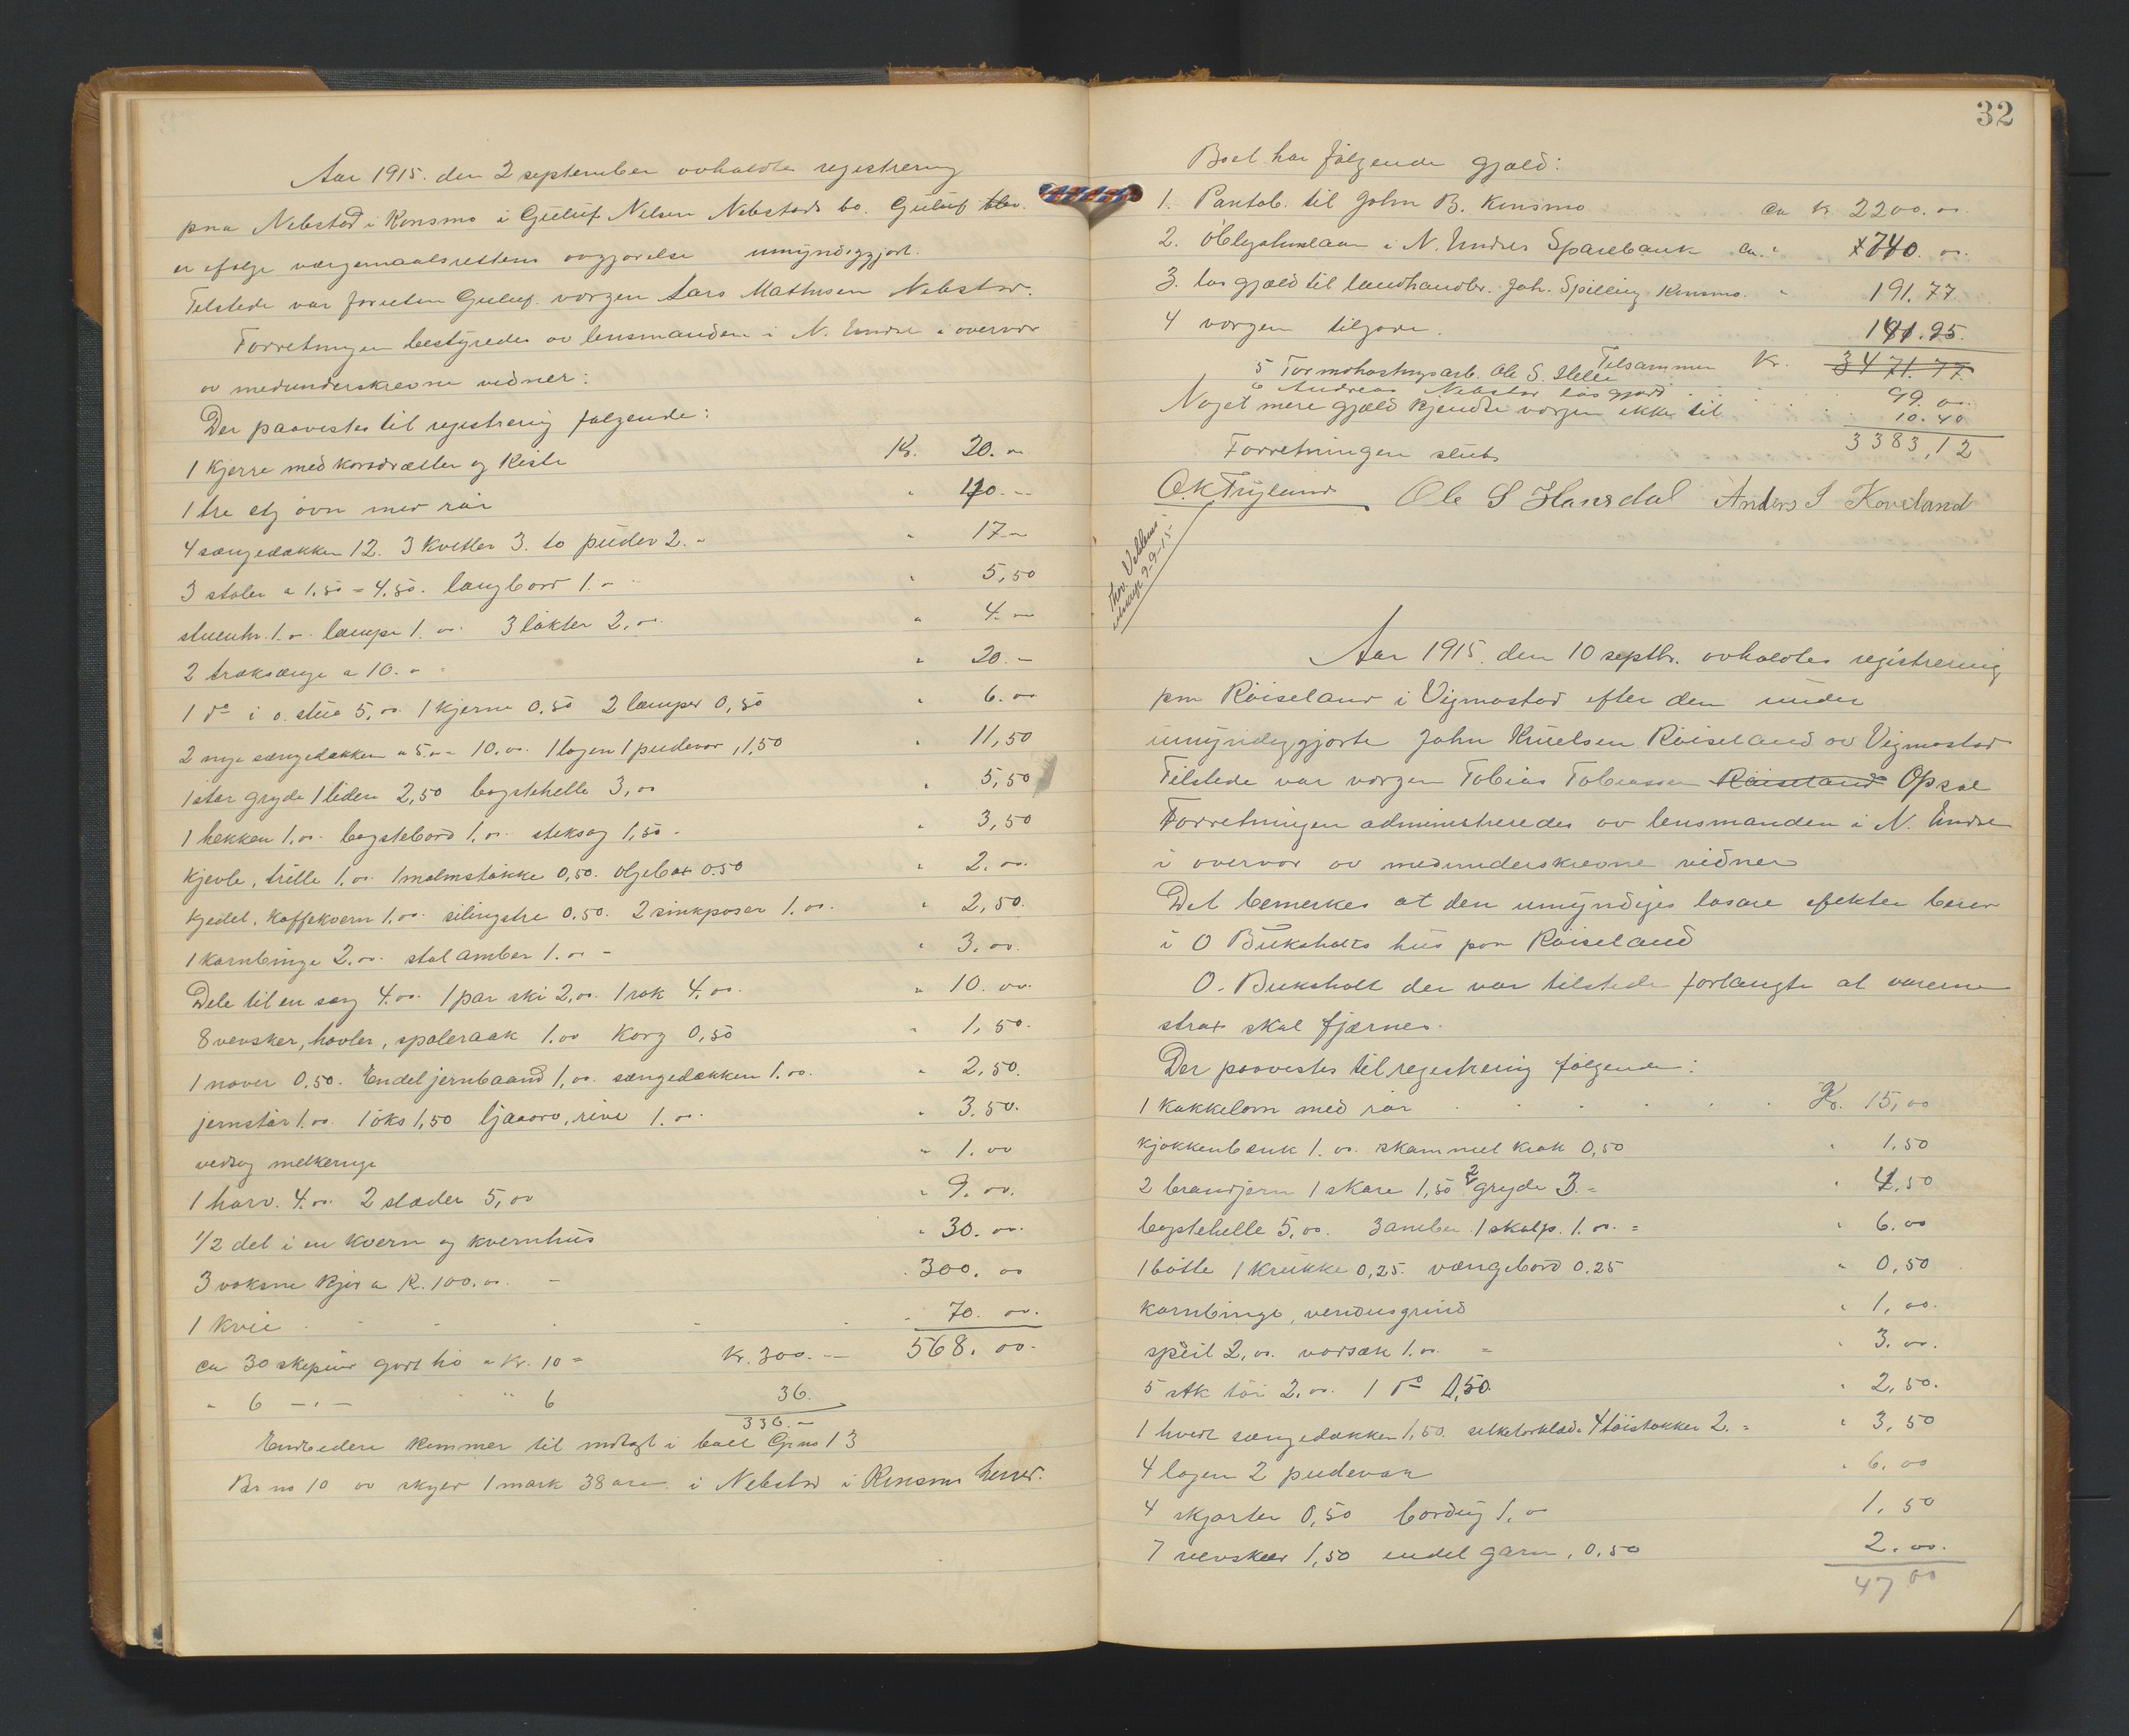 Aar 1915. den 2 september avholdtes registrering
paa Nebstad i Konsmo i Guluf Nelsen Nebstads bo. Guluf blev
er ifølge vergemaalsrettens avgjørelse umyndiggjort.
Tilstede var foruten Guluf vergen Lars Mathisen Nebstad.
Forretningen bestyredes av lensmanden i N. Undal i overvær
av medunderskrevne vidner:
Der paavistes til registrering følgende:
1 kjerre med korsdrætter og kiste Kr. 20.00
1 tre etg ovn med rør " 10.--
4 sengedækken 12. 3 kvitler 3. to puder 2.- " 17.-
3 stoler a 1.50 = 4.50. langbord 1.- " 5,50
stueuhr. 1.00. lampe 1.00. 3 løkter 2,00. " 4.00
2 træksenge a 10.- " 20.-
1 do i ø. stue 5,00. 1 kjerne 0.50 2 lamper 0,50 " 6.00
2 nye sengedækken a 5.00 = 10.00. 1 lagen 1 pudevar 1,50 " 11,50
1 stor gryde 1 liden 2,50 bagstehelle 3,00 " 5,50
1 bekken 1.00. bagstebord 1.00. stiksag 1,50. " 3,50
kjevle, trille 1.00. 1 malmstøkke 0,50. oljebox 0.50 " 2.00.
kjedel. kaffekvern 1.00. silingstre 0.50. 2 sinkposer 1.00. " 2,50.
1 kornbinge 2.00. stolamber 1.00 - " 3.00.
Dele til en seng 4.00. 1 par ski 2,00. 1 rok 4.00. " 10.00.
8 vevsker, hovler, spoleraak 1.00 korg 0,50 " 1,50.
1 naver 0.50. Endel jernbaand 1,00. sengedækken 1.00. " 2,50.
jernstør 1.00. 1 øks 1,50 ljaaorv, rive 1.00. " 3.50.
vedsag melkeringe " 1.00
1 harv. 4.00. 2 slæder 5,00 " 9.00.
1/2 del i en kvern og kvernhus " 30.00.
3 voksne kjør a K. 100.00. - 300.00
1 kvie 70.00.
568.00.
ca 30 skipund godt hø a Kr. 10 = Kr. 300.-
" 6 -"- " " 6 36.
336.-
Endvidere kommer til indtægt i boet Gr. no 13
Br no 10 av skyld 1 mark 38 øre i Nebstad i Konsmo herred.
32
Boet har følgende gjæld:
1. Pantob. til John B. Konsmo ca Kr. 2200.00.
2. Obligationslaan i N. Undals Sparebank ca. " 740.00.
3. løs gjæld til landhandler. Joh. Spilling Konsmo. " 191.77
4 vergen tilgode. 141.95.
Tilsammen Kr. 3471.77
5 Torvidhostingsarb. Ole S. Helle 99.00
6 Andreas Nebstad løs gjæld 10.40
Noget mere gjæld kjendte vergen ikke til
3383,12
Forretningen slut
O.K Trygland Ole S Hansdal Anders S Koveland
Aar 1915. den 10 septbr. avholdtes registrering
paa Røiseland i Vigmostad efter den under
umyndiggjorte John Knutsen Røiseland av Vigmostad
Tilstede var vergen Tobias Tobiassen Røiseland Opsal
Forretningen administreredes av lensmanden i N. Undal
i overvær av medunderskrevne vidner
Det bemerkes at den umyndiges løsøre efekter beror
i O Buksholts hus paa Røiseland
O. Buksholt der var tilstede forlangte at varerne
strax skal fjernes.
Der paavistes til registrering følgende:
1 kakkelovn med rør Kr. 15,00
kjøkkenbænk 1.00. skammel krak 0,50 " 1.50
2 brandjern 1 skare 1,50 2 gryde 3.= " 4.50
bagstehelle 5.00. 3 amber 1 skalp. 1.00.= " 6.00
1 bøtte 1 krukke 0,25. vængebord 0.25 " 0,50
kornbinge, vendusgrind " 1,00.
speil 2,00. vorsæk 1.00. = " 3.00.
5 stk tøi 2.00. 1 do 0,50. " 2,50.
1 hvidt sengedækken 1,50. silketørklæde 4 tøistøkker 2.= " 3,50
4 lagen 2 pudevar " 6.00
4 skjorter 0,50 bordug 1.00 1,50
7 vevskeer 1,50 endel garn. 0.50 2.00.
47 00